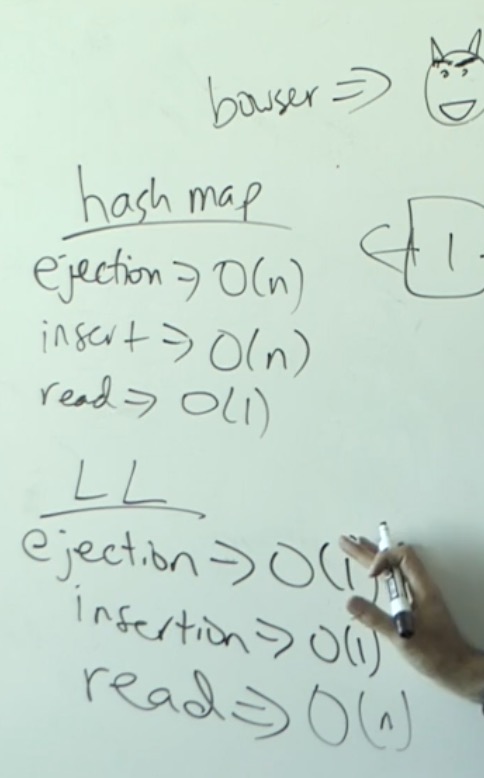 bowser =>
hash map
ejection => O(n)
insert => O(n)
read => O(1)
1
LL
ejection => O(1)
insertion => O(1)
read => O(n)